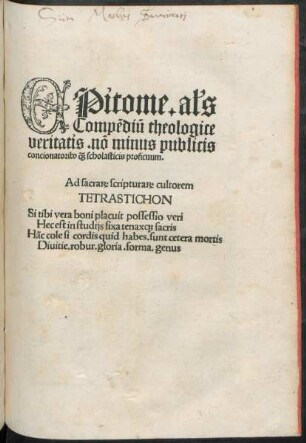 EPitome. als
Compēdiū theologice
veritatis. nō minus publicis
concionatorib⁹ q̄ȝ scholasticis proficuum.
Ad sacraꝝ scripturaꝝ cultorem
TETRASTICHON
Si tibi vera boni placuit possessio veri
Hec est in studijs fixa tenaxqȝ sacris
Hāc cole si cordis quid habes. sunt cetera mortis
Diuitie. robur. gloria. forma. genus